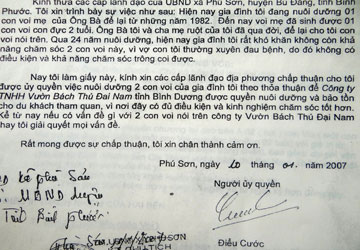 Kính xin các cấp lãnh đạo của UBND xã Phú Sơn, huyện Bù Đăng, tỉnh Bình
Phước. Tôi xin trình bày sự việc như sau: Hiện nay gia đình tôi đang nuôi dưỡng 01
con voi mẹ của Ông Bà để lại từ những năm 1982. Đến nay voi mẹ đã sinh được 01
con voi con đực 2 tuổi. Ông Bà tôi và cha mẹ ruột của tôi đã qua đời, để lại cho tôi con
voi nói trên. Qua 24 năm nuôi dưỡng, hiện nay gia đình tôi rất khó khăn không còn khả
năng chăm sóc 2 con voi này, vì voi con thường xuyên đau bệnh, do đó không có
điều kiện và khả năng chăm sóc trông coi được.
Nay tôi làm giấy này, kính xin các cấp lãnh đạo địa phương chấp thuận cho tôi
được ủy quyền việc nuôi dưỡng 2 con voi của gia đình tôi theo thỏa thuận để Công ty
TNHH Vườn Bách Thú Đại Nam tỉnh Bình Dương được quyền nuôi dưỡng và bảo tồn
cho du khách tham quan, vì nơi đây có đủ điều kiện và kinh nghiệm chăm sóc tốt hơn.
Kể từ nay nếu có vấn đề gì với 2 con voi nói trên công ty Vườn Bách Thú Đại Nam
hay tôi giải quyết mọi vấn đề.
Rất mong được sự chấp thuận, tôi xin chân thành cảm ơn.
Phú Sơn, ngày 10 tháng 01 năm 2007
Người ủy quyền
UBND
Điều Cước